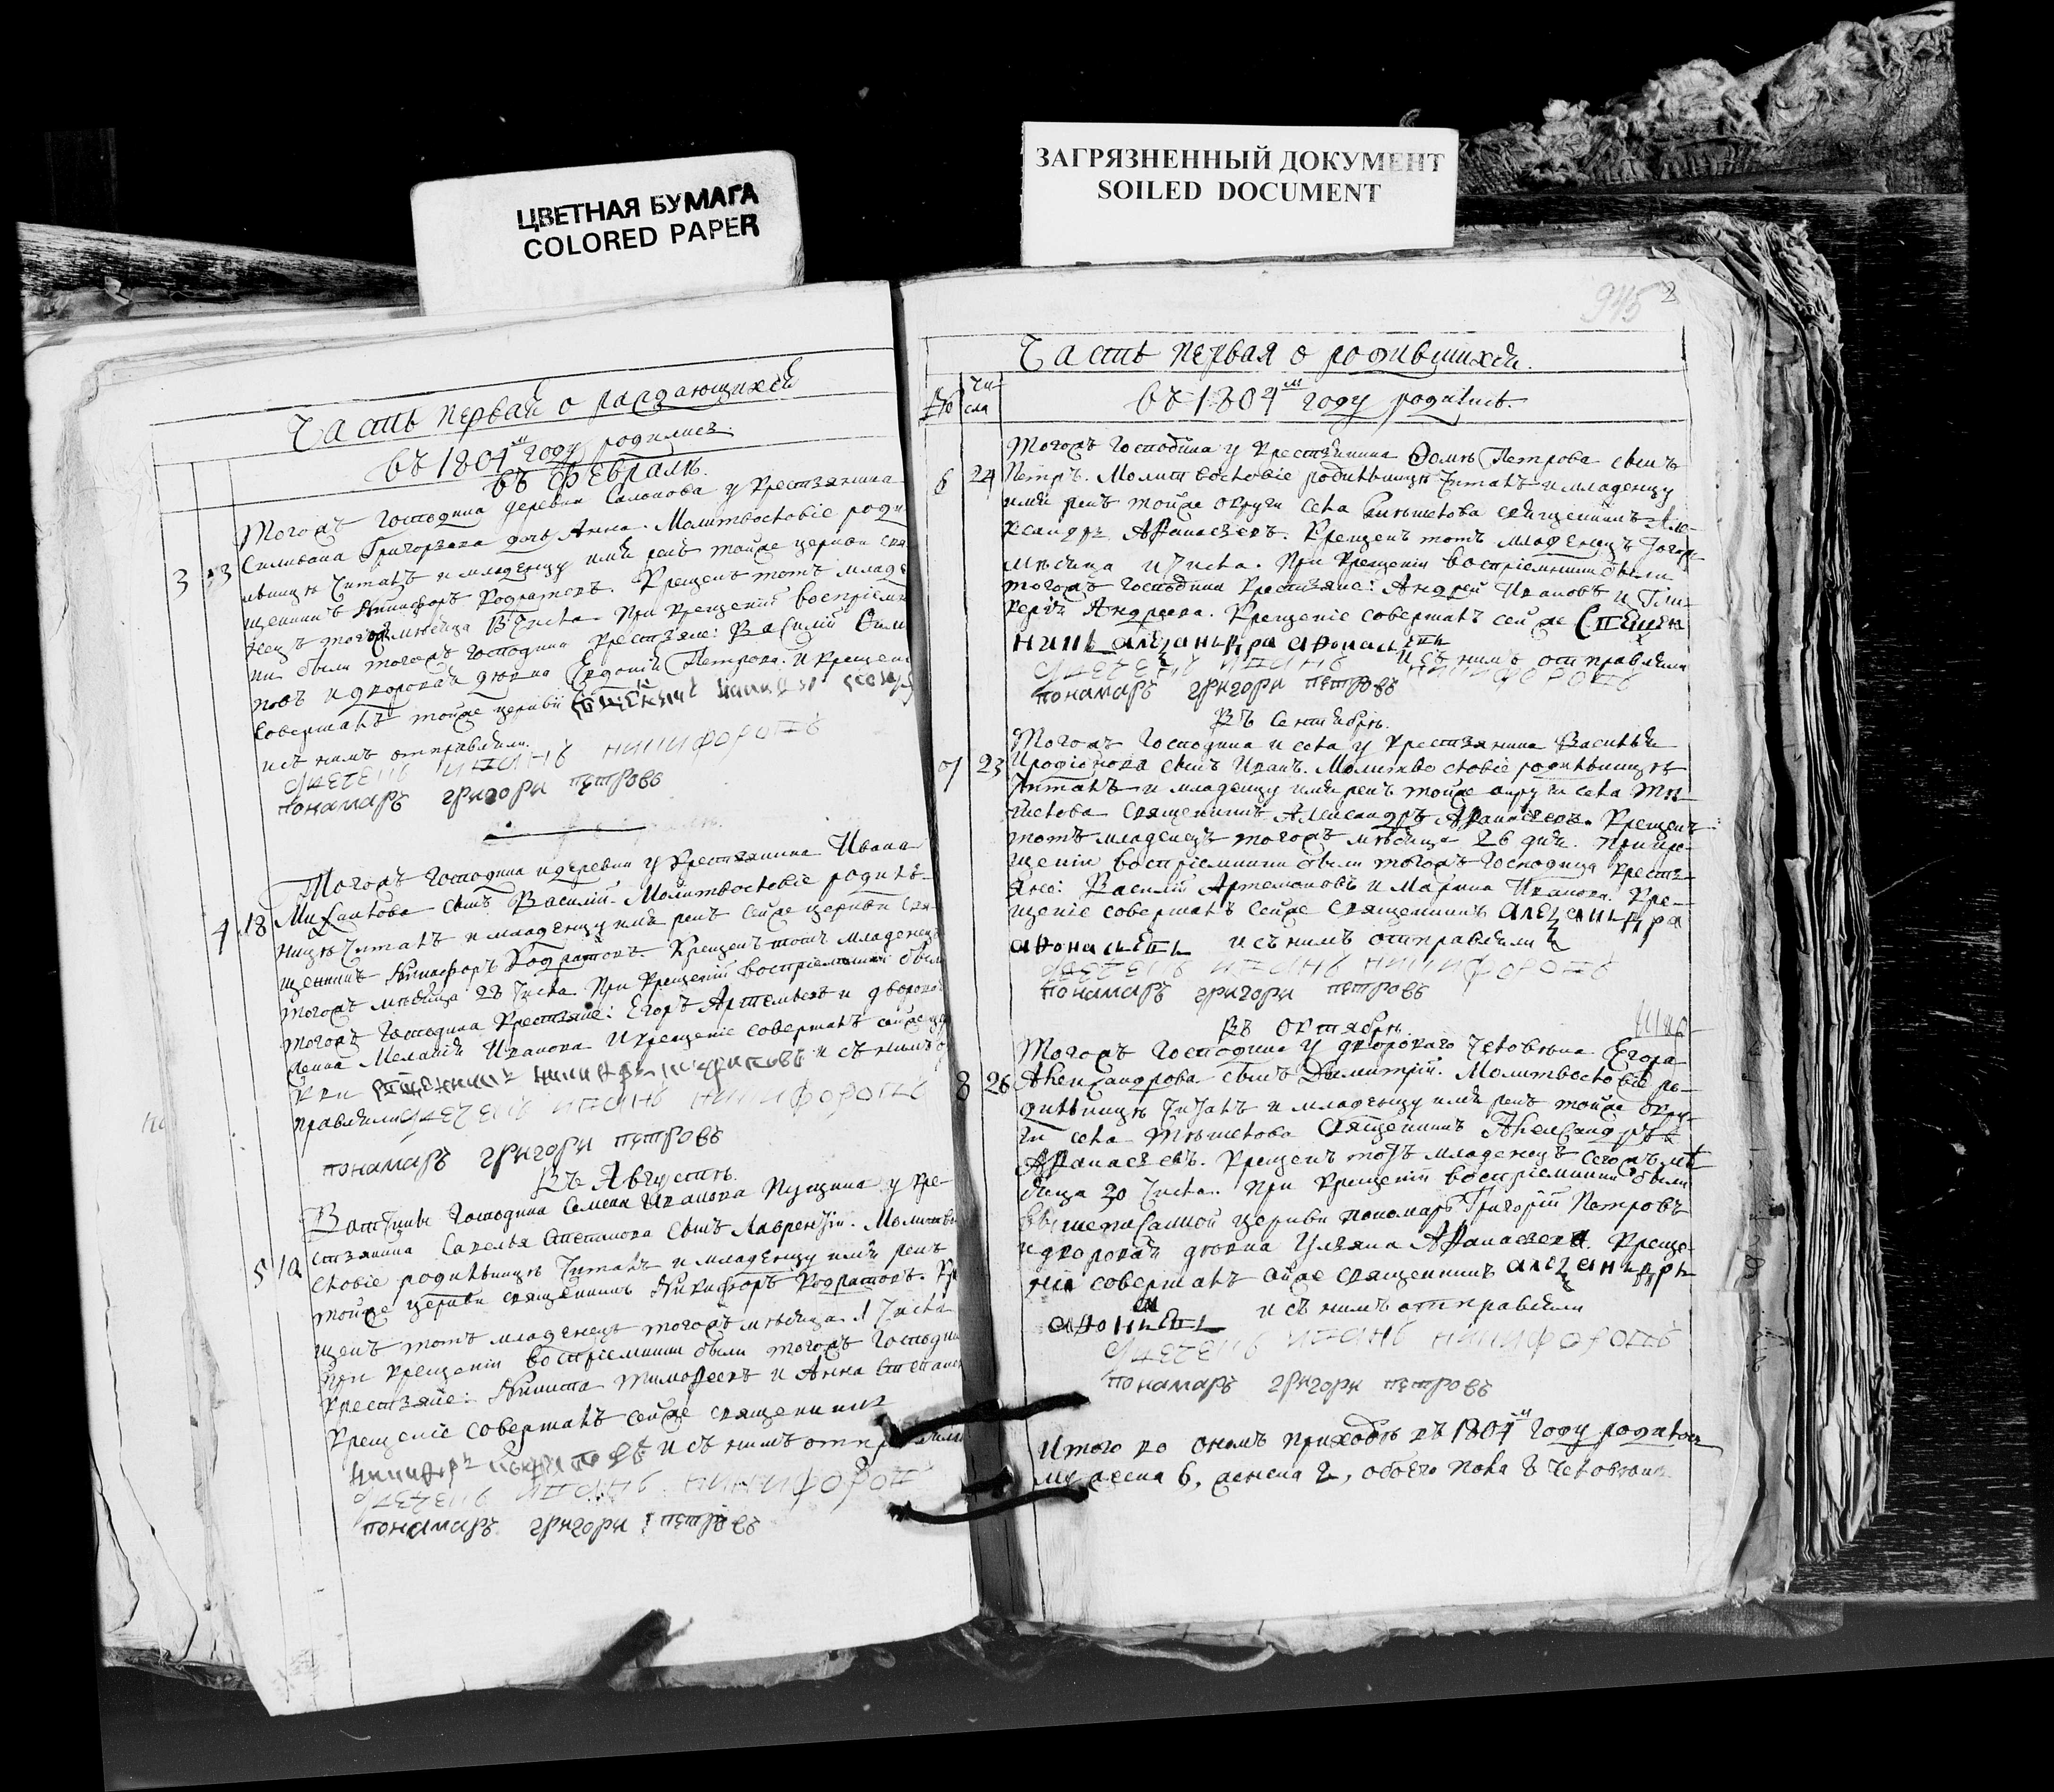 ЦВЕТНАЯ БУМАГА
COLORED PAPER
ЗАГРЯЗНЕННЫЙ ДОКУМЕНТ
SOILED DOCUMENT
Часть первая о раждающихся
въ 1804м году родились.
въ Февралѣ.
Тогожъ Господина деревни у крестьянина
3
Силивана Григорьева дочь Анна. Молитвословіе роди
льницѣ читалъ и младенцу имя рекъ тойже церкви свя
щенникъ Никифоръ Кодратовъ. Крещенъ тотъ младе
нецъ тогожъ мѣсяца числа. При крещеніи воспріемни
ки были тогожъ господина крестьяне: Василий
и дворовая дѣвка Евдокія Петрова. и крещеніе
совершалъ тойже церкви
и съ нимъ отправляли.
иванъ никифоровъ
понамаръ григори петровъ
Тогожъ Господина и деревни у крестьянина Ивана
4 18 Михайлова сынъ Василій. Молитвословіе родиль-
ницѣ читалъ и младенцу имя рекъ сейже церкви свя-
щенникъ Никифоръ Кодратовъ. Крещенъ тотъ младенецъ
тогожъ мѣсяца числа. При крещеніи воспріемники были
тогожъ Господина крестьяне: Егоръ Артемьевъ и дворовая
Меланія Иванова и крещеніе совершалъ сейже
кви священникъ и съ нимъ о
правляли иванъ никифоровъ
понамаръ григори петровъ
Въ Августѣ.
Вотчины Господина Семена Иванова Пущина у кре-
стьянина Савелья Степанова сынъ Лаврентій. Молитво
5 словіе родильницѣ читалъ и младенцу имя рекъ
тойже церкви священникъ Никифоръ Кодратовъ. Кре
щенъ тотъ младенецъ тогожъ мѣсяца числа
при крещеніи воспріемники были тогожъ Господина
крестьяне: Никита Тимофеевъ и Анна Степано
Крещеніе совершалъ сейже священникъ
и съ нимъ отправляли
иванъ никифоровъ
понамаръ григори петровъ
945 2
Часть первая о родившихся.
№ чи-
сла
въ 1804м году родились.
Тогожъ Господина у крестьянина Фомы Петрова сынъ
6 24 Петръ. Молитвословіе родильницѣ читалъ и младенцу
имя рекъ тойже округи села священникъ Але-
ксандръ Афанасьевъ. Крещенъ тотъ младенецъ тогожъ
мѣсяца числа. При крещеніи воспріемники были
тогожъ господина крестьяне: Андрей Ивановъ и Гли-
керія Андреева. Крещеніе совершалъ сейже священ
никъ
и съ нимъ отправляли
иванъ никифоровъ
понамаръ григори петровъ
Въ Сентябрѣ.
Тогожъ Господина и села у крестьянина Василья
7 23 Иродіонова сынъ Иванъ. Молитвословіе родильницѣ
читалъ и младенцу имя рекъ тойже округи села
священникъ Александръ Афанасьевъ. Крещенъ
тотъ младенецъ тогожъ мѣсяца 26 дня. При кре-
щеніи воспріемники были тогожъ Господина кресть-
яне: Василій Артемоновъ и Марина Иванова. Кре-
щеніе совершалъ сейже священникъ
и съ нимъ отправляли
иванъ никифоровъ
понамаръ григори петровъ
Въ Октябрѣ.
Тогожъ Господина у двороваго человѣка Егора
8 26 Александрова сынъ Димитрій. Молитвословіе ро-
дильницѣ читалъ и младенцу имя рекъ тойже окру-
ги села священникъ Александръ
Афанасьевъ. Крещенъ тотъ младенецъ сегожъ мѣ
сяца 30 числа. При крещеніи воспріемники были
вышеписанной церкви пономарь Григорій Петровъ
и дворовая дѣвка Ульяна Афанасьева. Креще-
ніе совершалъ сейже священникъ
и съ нимъ отправляли
иванъ никифоровъ
понамаръ григори петровъ
Итого во ономъ приходѣ въ 1804м году родилось
мужеска 6, женска 2, обоего пола 8 человѣкъ